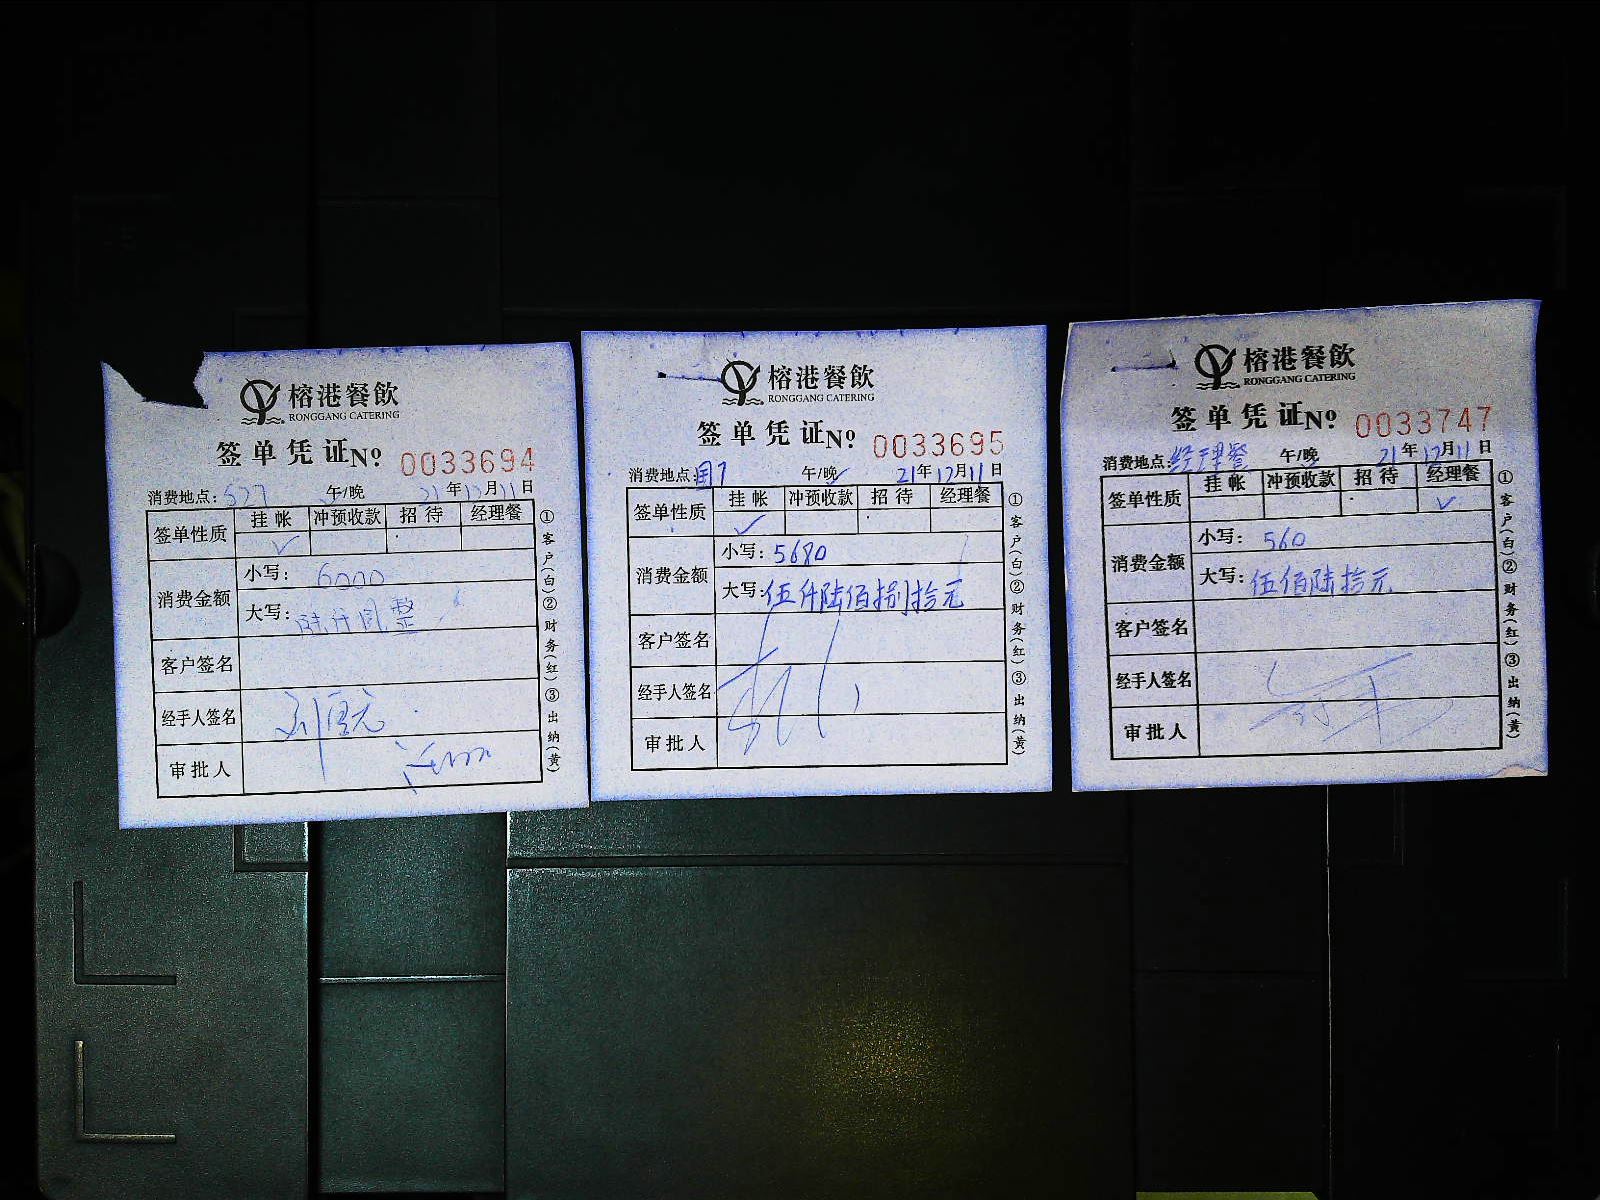 榕港餐飲
RONGGANG CATERING
签单凭证No 0033694
消费地点: 527 午/晚 21年12月11日
签单性质 挂帐 冲预收款 招待 经理餐
✓
消费金额
小写: 6000
大写: 陆仟圆整
客户签名
经手人签名
审批人
①客户(白)②财务(红)③出纳(黄)
榕港餐飲
RONGGANG CATERING
签单凭证No 0033695
消费地点: 国7 午/晚✓ 21年12月11日
签单性质 挂帐 冲预收款 招待 经理餐
✓
消费金额
小写: 5680
大写: 伍仟陆佰捌拾元
客户签名
经手人签名
审批人
①客户(白)②财务(红)③出纳(黄)
榕港餐飲
RONGGANG CATERING
签单凭证No 0033747
消费地点: 经理餐 午/晚 21年12月11日
签单性质 挂帐 冲预收款 招待 经理餐
✓
消费金额
小写: 560
大写: 伍佰陆拾元
客户签名
经手人签名
审批人
①客户(白)②财务(红)③出纳(黄)